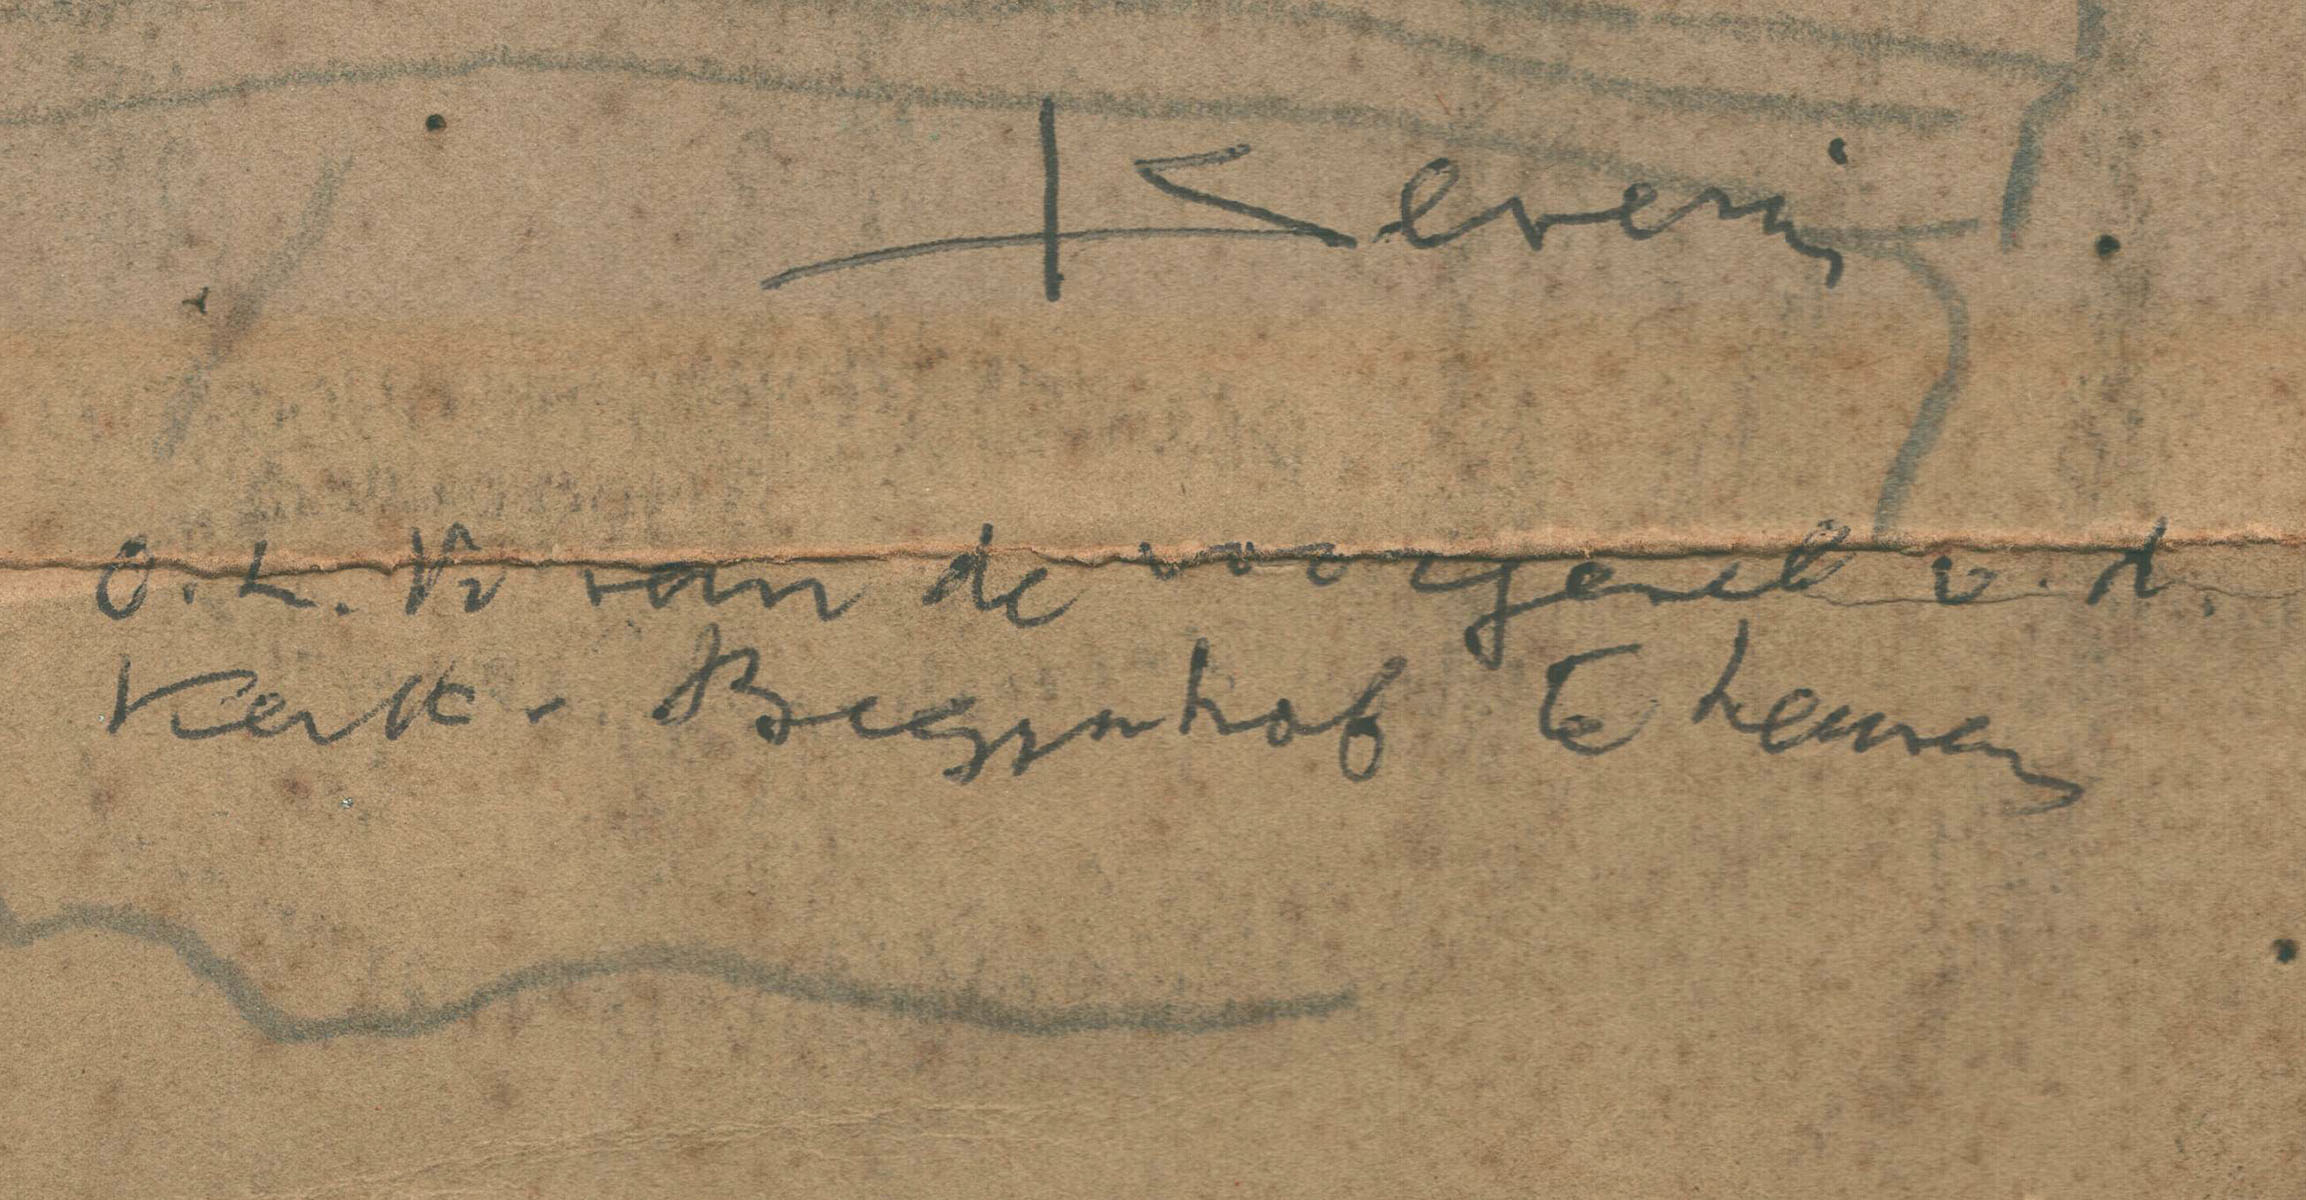 Severin
O.L.V van de voorgevel v.d.
Kerk. Begijnhof te Leuven